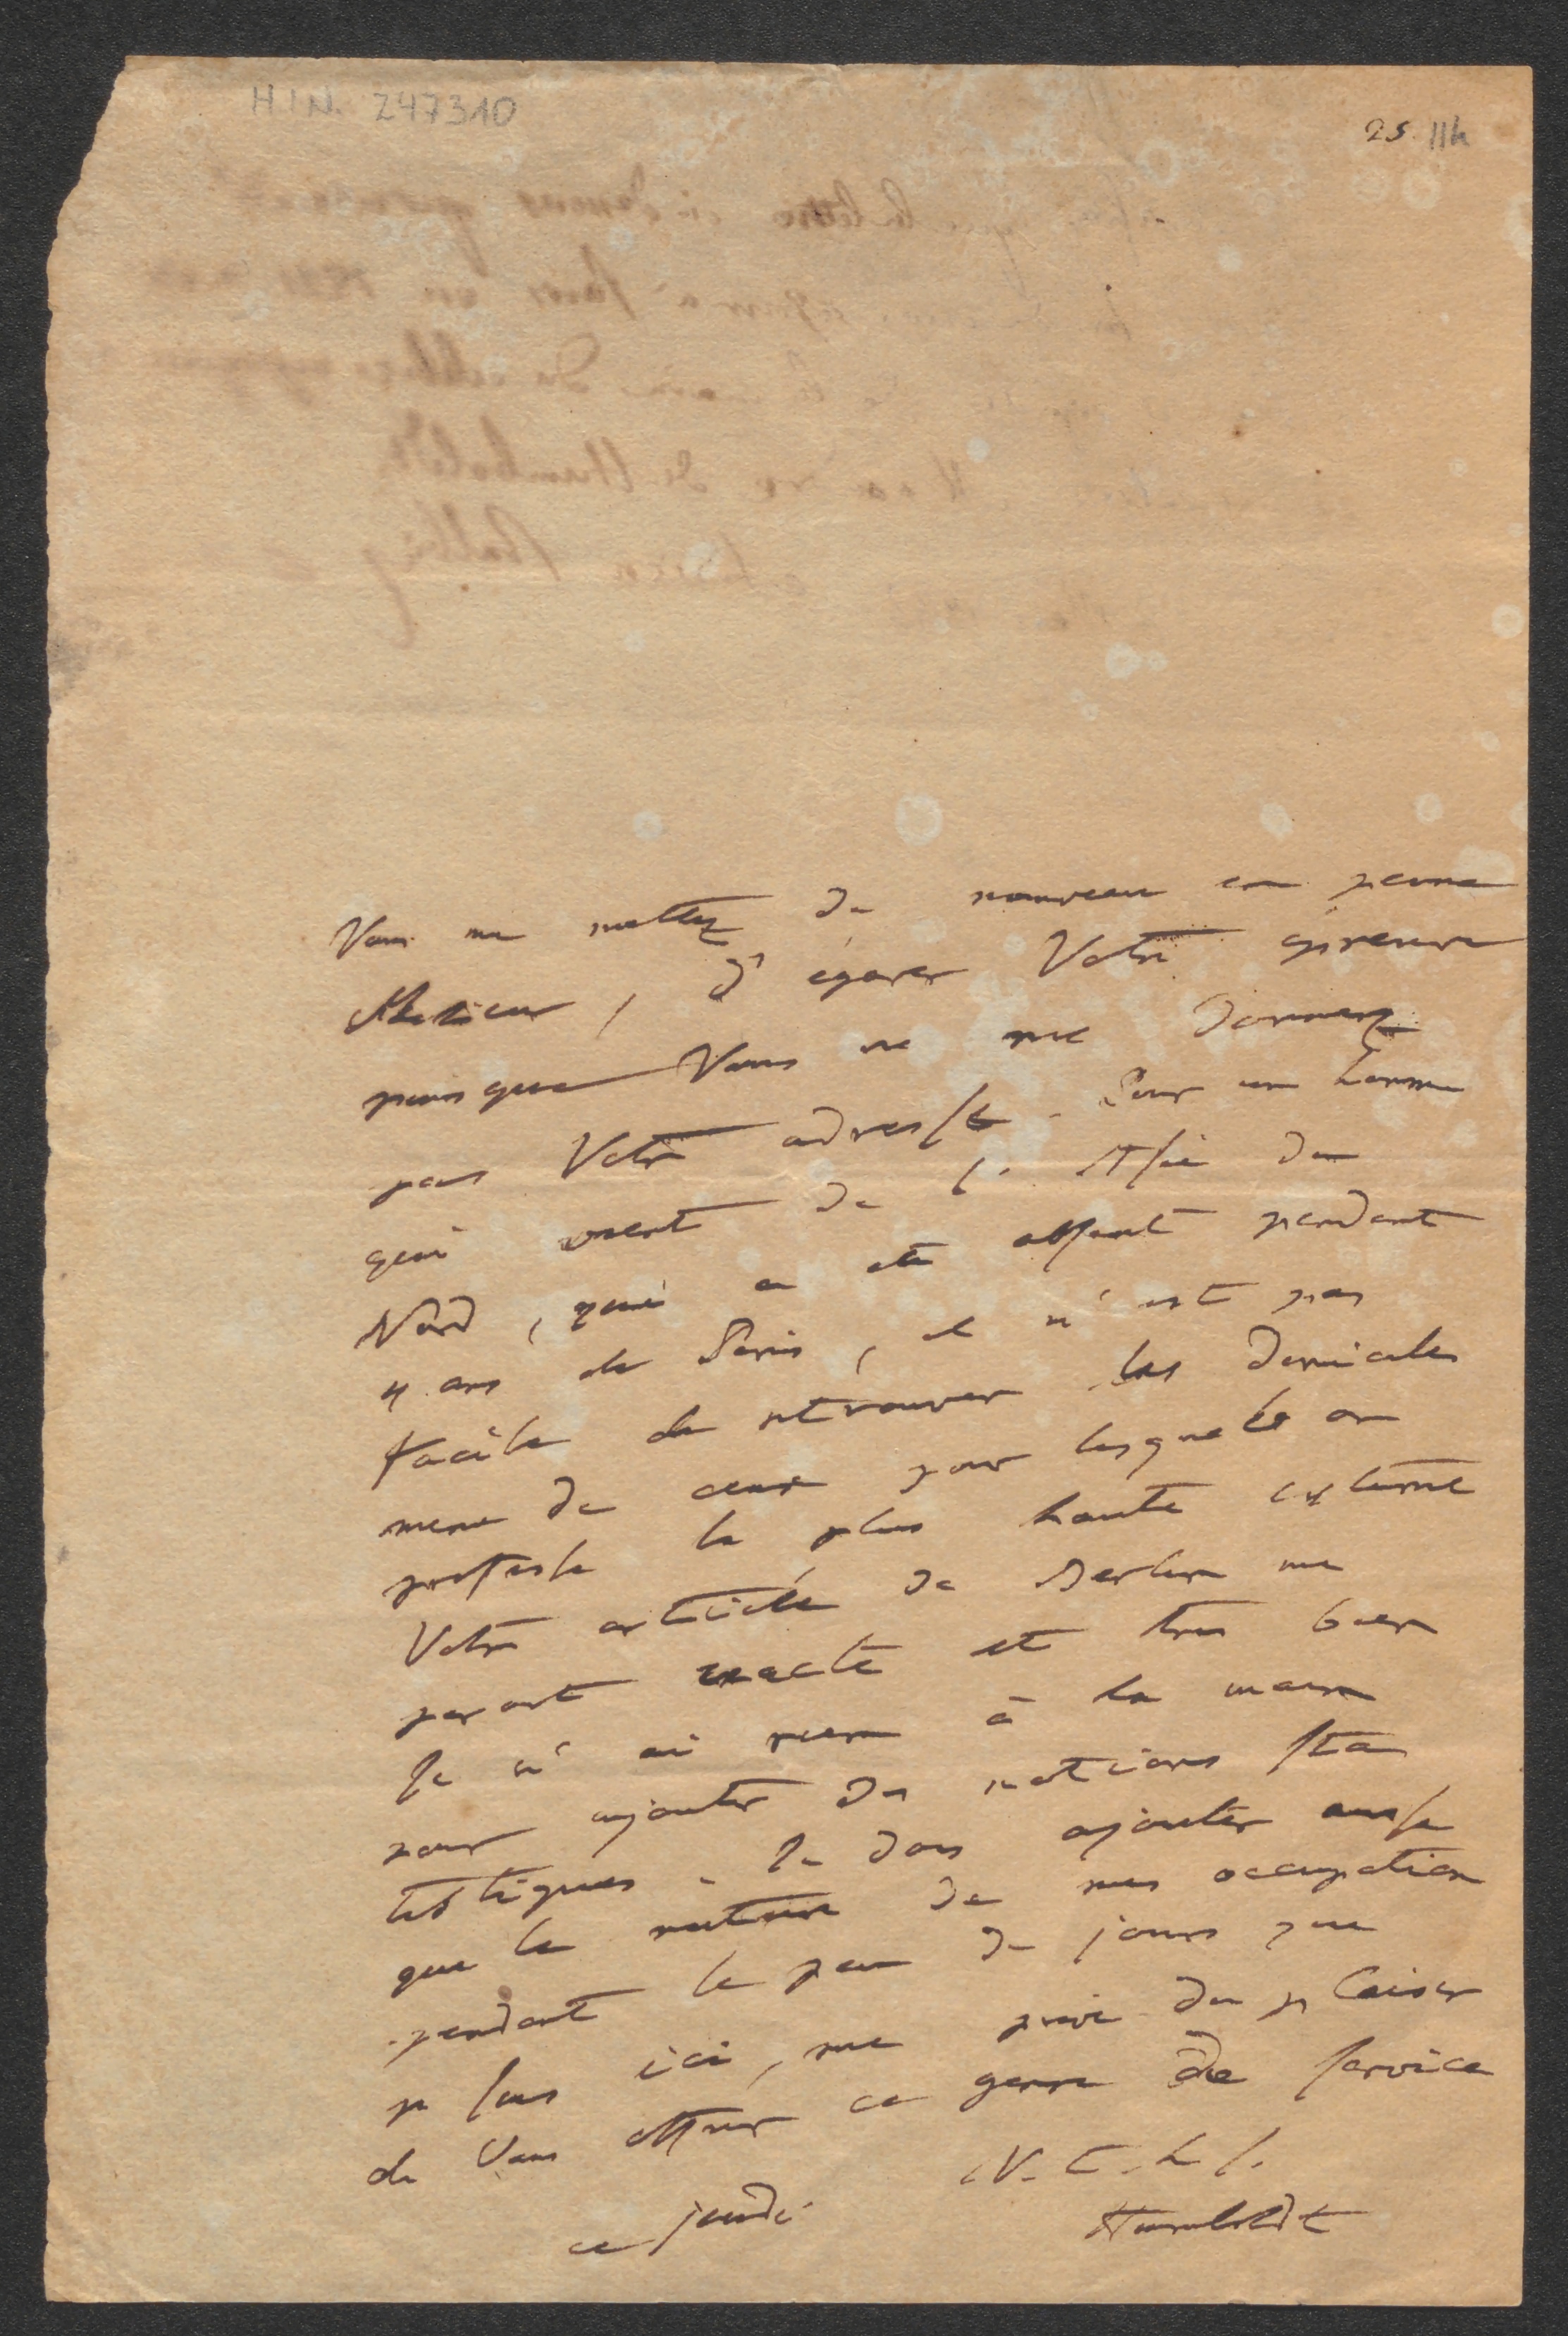 H.I.N. 247310
25. 114
Vous me mettez de nouveau en peine
Monsieur, d'égarer Votre epreuve
puisque Vous ne me donnez
pas Votre adresse. Pour un homme
qui vient de l'Asie du
Nord, qui a ete absent pendant
4 ans de Paris, il n'est pas
facile de retrouver les domiciles
meme de ceux pour lesquels on
professe la plus haute estime
Votre article de Berlin me
parait exacte et tres bien
Je n'ai rien à la main
pour ajouter des notions sta
tistiques. Je dois ajouter aussi
que la nature de mes occupation
pendant le peu de jours que
je suis ici, me prive du plaisir
de Vous offrir ce genre de service
ce jeudi
Humboldt